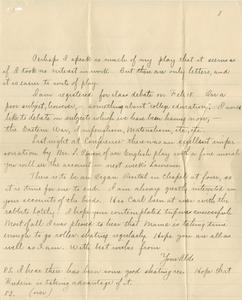 Perhaps I speak so much of my play that it seems
as if I took no interest in work. But these are only letters, and
it is easier to write of play.
I am registered for class debate on Feb.
poor subject, however, — something about "college education";— I would
like to debate on subjects which we have been having now,—
the Eastern War, Imperialism, Materialism, etc., etc.
Last night at Conference there was an excellent imper-
sonation by Mr. of an English play with a fine moral
you will see the account in next week's
There is to be an Organ Recital in chapel at four, so
it is time for me to end. I am always greatly interested in
your accounts of the birds. Has Carl been at war with the
rabbit lately? I hope your contemplated trip was successful.
Most of all I was pleased to hear that Mama is taking time
enough to go roller skating regularly. Hope you are all as
well as I am. With best wishes from
P.S. I hear there has been some good skating near. Hope that
is taking advantage of it.
P.S. (over)